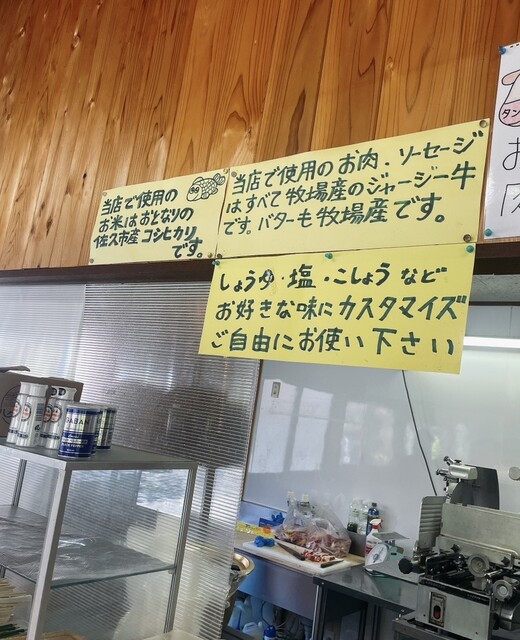 当店で使用の
お米はおとなりの
佐久市産コシヒカリ
です。
当店で使用のお肉、ソーセージ
はすべて牧場産のジャージー牛
です。バターも牧場産です。
しょうゆ・塩・こしょうなど
お好きな味にカスタマイズ
ご自由にお使い下さい
タン
お
肉